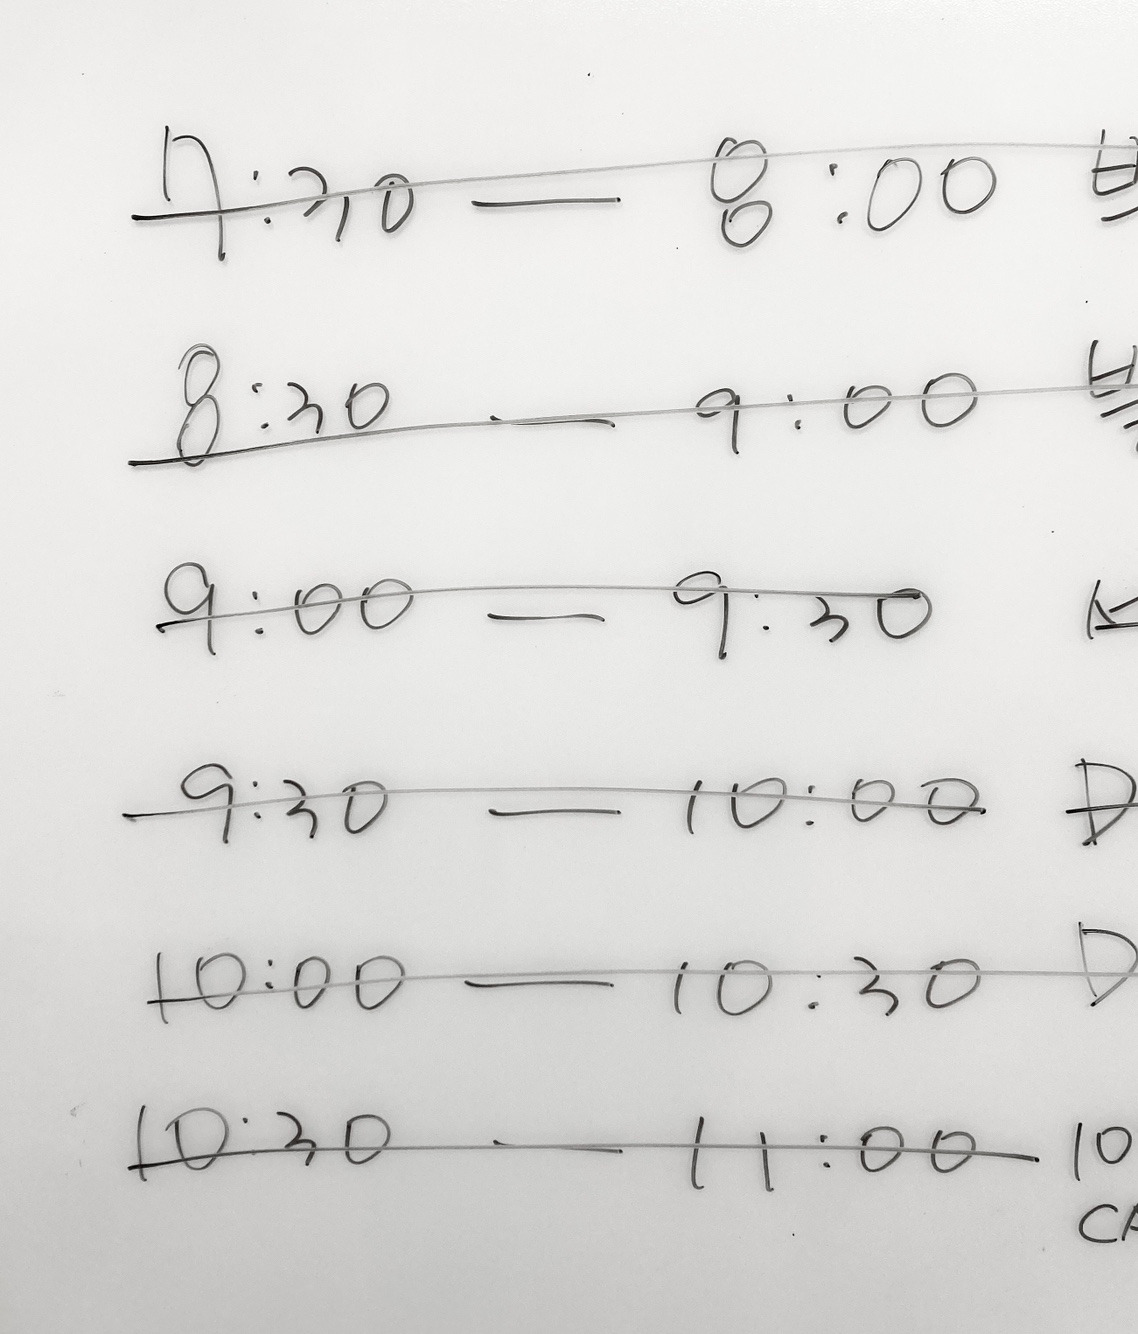 7:30 — 8:00
8:30 — 9:00
9:00 — 9:30
9:30 — 10:00 D
10:00 — 10:30 D
10:30 — 11:00 10